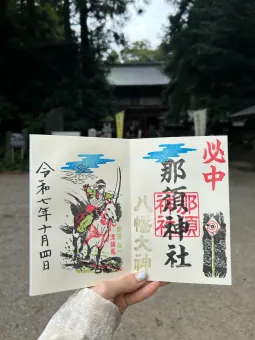 必中
那須神社
八幡大神
令和七年十月四日